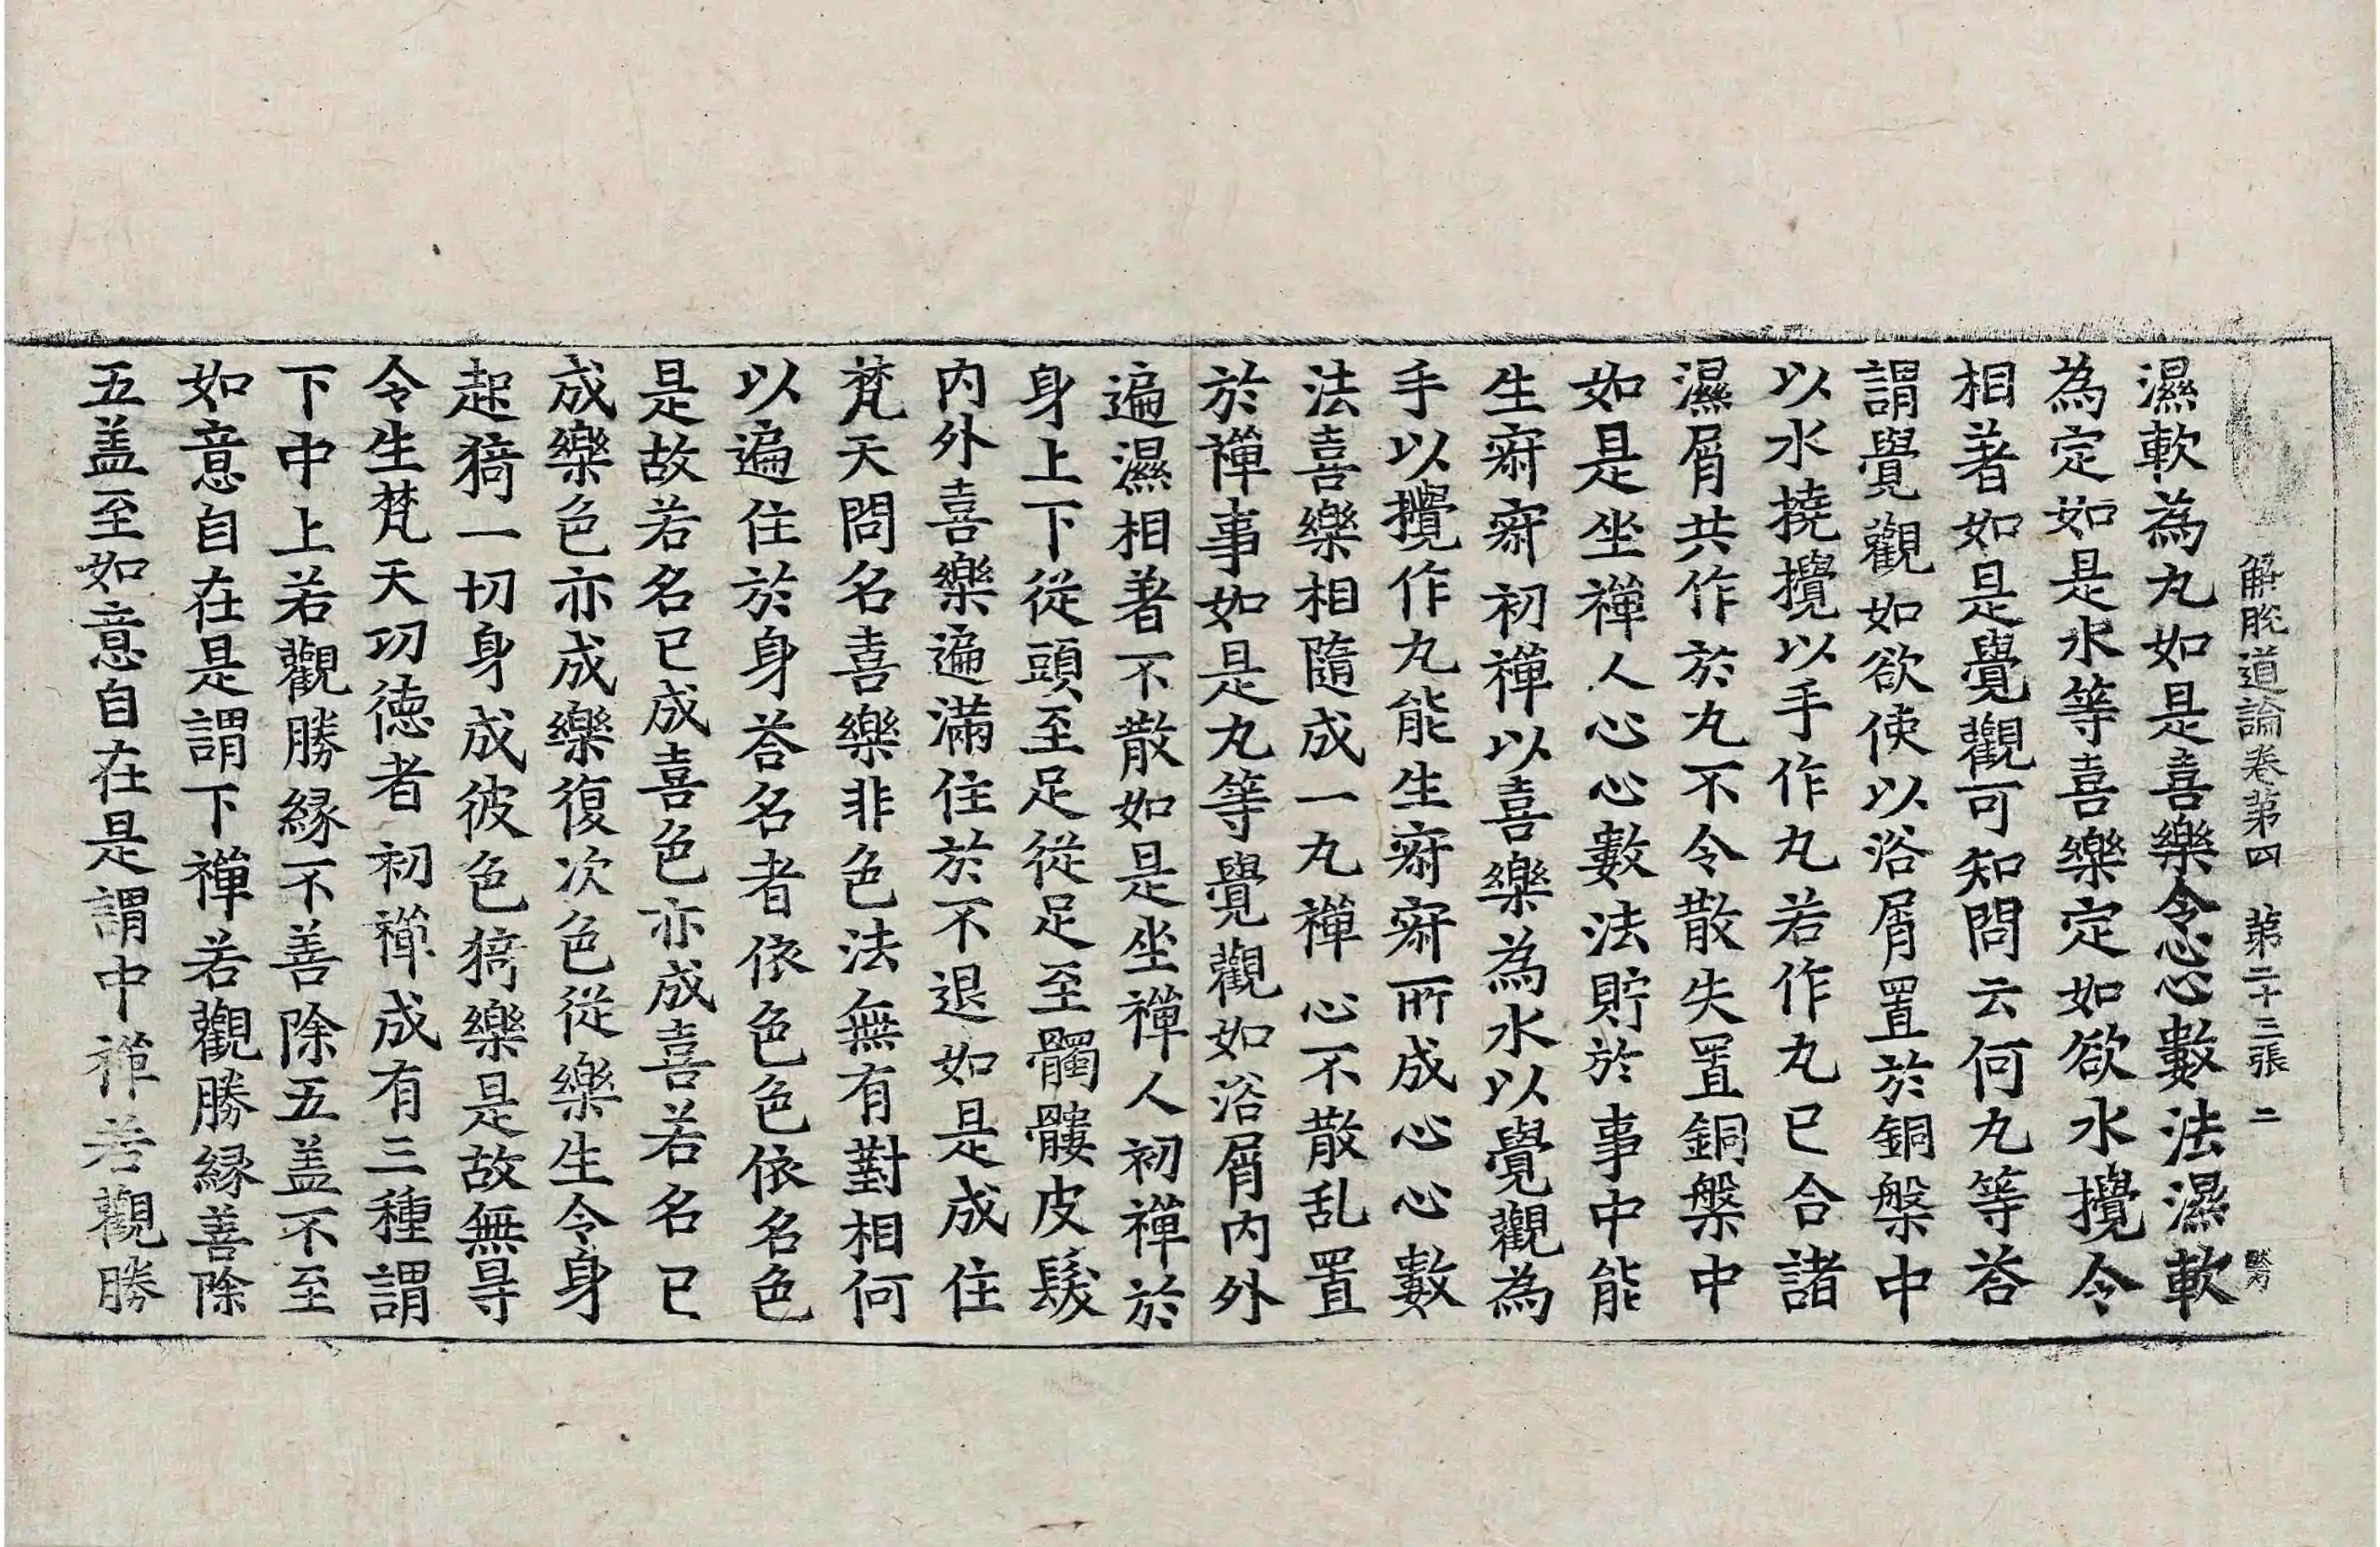 解脫道論卷第四 第二十三張 二
濕軟為丸如是喜樂令心心數法濕軟
為定如是水等喜樂定如欲水攪令
相著如是覺觀可知問云何丸等荅
謂覺觀如欲使以浴屑置於銅槃中
以水撓攪以手作丸若作丸已合諸
濕屑共作於丸不令散失置銅槃中
如是坐禪人心心數法貯於事中能
生㝥㝥初禪以喜樂為水以覺觀為
手以攪作丸能生㝥㝥所成心心數
法喜樂相隨成一丸禪心不散乱置
於禪事如是丸等覺觀如浴屑內外
遍濕相著不散如是坐禪人初禪於
身上下從頭至足從足至髑髏皮髮
內外喜樂遍滿住於不退如是成住
梵天問名喜樂非色法無有對相何
以遍住於身荅名者依色色依名色
是故若名已成喜色亦成喜若名已
成樂色亦成樂復次色從樂生令身
起猗一切身成彼色猗樂是故無㝵
令生梵天功德者初禪成有三種謂
下中上若觀勝緣不善除五盖不至
如意自在是謂下禪若觀勝緣善除
五盖至如意自在是謂中禪若觀勝